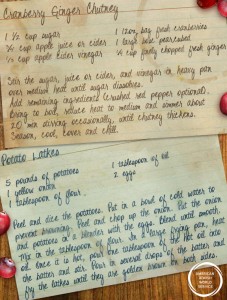 Cranberry Ginger Chutney
1 1/2 cup sugar
1 12oz. bag fresh cranberries
3/4 cup apple juice or cider
1 large pear, peeled
3/4 cup apple cider vinegar
1/4 cup finely chopped fresh ginger
Stir the sugar, juice or cider, and vinegar in heavy pan
over medium heat until sugar dissolves.
Add remaining ingredients (crushed red pepper optional).
Bring to boil, reduce heat to medium and simmer about
20 min stirring occasionally, until chutney thickens.
Season, cool, cover and chill.
Potato Latkes
5 pounds of potatoes
1 tablespoon of oil
1 yellow onion
2 eggs
1 tablespoon of flour
Peel and dice the potatoes. Put in a bowl of cold water to
prevent browning. Peel and chop up the onion. Put the onion
and potatoes in a blender with the eggs. Blend until smooth.
Mix in the tablespoon of flour. In a large frying pan, heat
oil. Once it is hot, pour the tablespoon of the hot oil into
the batter and stir. Pour in several drops of the batter and
fry the latkes until they are golden brown on both sides.
AMERICAN
JEWISH
WORLD
SERVICE